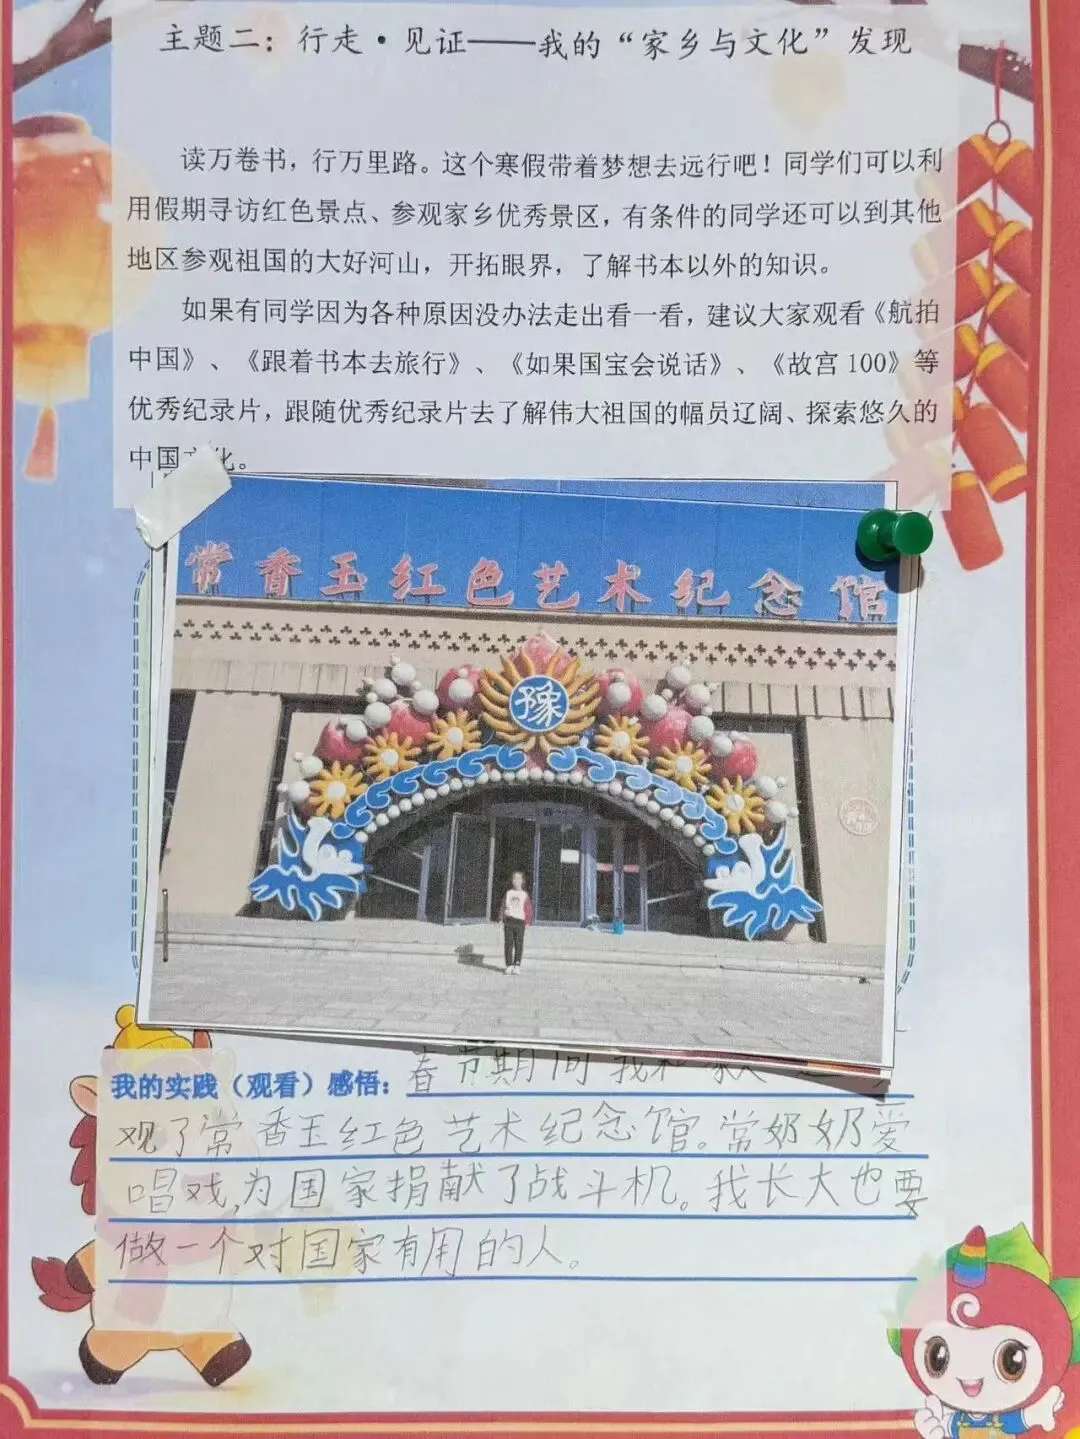 主题二：行走·见证——我的“家乡与文化”发现
读万卷书，行万里路。这个寒假带着梦想去远行吧！同学们可以利
用假期寻访红色景点、参观家乡优秀景区，有条件的同学还可以到其他
地区参观祖国的大好河山，开拓眼界，了解书本以外的知识。
如果有同学因为各种原因没办法走出看一看，建议大家观看《航拍
中国》、《跟着书本去旅行》、《如果国宝会说话》、《故宫 100》等
优秀纪录片，跟随优秀纪录片去了解伟大祖国的幅员辽阔、探索悠久的
中国文化。
常香玉红色艺术纪念馆
豫
我的实践（观看）感悟：春节期间我和家
观了常香玉红色艺术纪念馆。常奶奶爱
唱戏，为国家捐献了战斗机。我长大也要
做一个对国家有用的人。